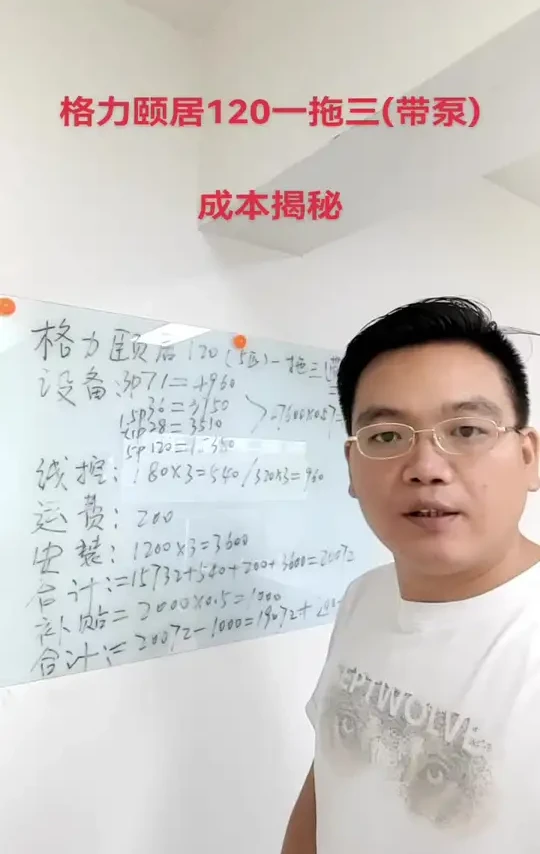 格力颐居120一拖三(带泵)
成本揭秘
格力颐居120(5匹)一拖三(带
设备:3P71=4960
1.5P36=3750
28=3510
5P120=
线控:180×3=540/320×3=960
运费:200
安装:1200×3=3600
合计:=15732+540+200+3600=20072
补贴=2000×0.5=1000
合计:=20072-1000=19072+
EPTWOLVE